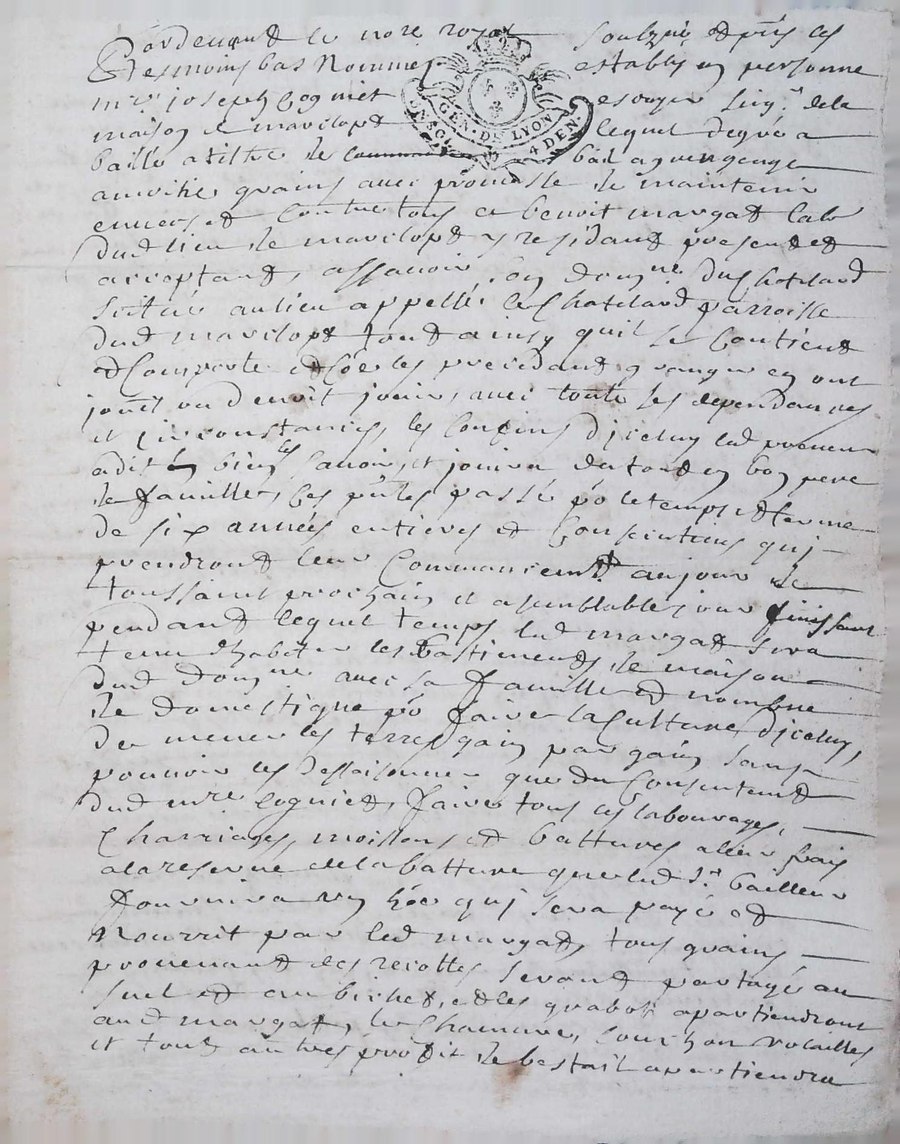 Pardevant le nore royal soubzné et pñs les
tesmoins bas Nommes establis en personne
mre joseph Cogniet escuyer seigr de la
maison de mavelopt lequel degré a
baillé a tiltre de bail a grengeage
a moitie grains avec promesse de maintenir
envers et Contre tous a benoit margat labr
dud lieu de mavelopt y residant present et
acceptant, assavoir, son domne du Chatelard
scitué au lieu appellé le Chatelard parroisse
dud mavelopt tout ainsy quil se Contient
et Comporte et les precedant granger en ont
jouit ou deub jouir, avec toute ses dependances
et circonstances, les Confins d'iceluy led preneur
a dit bien les scavoir, et jouira du tout en bon pere
de famille, Ces pñtes passé po le temps et terme
de six années entieres et Consecutives qui
prendront leur Commancemt au jour de
toussaint prochain et a semblable jour finissant
pendant lequel temps led margat sera
tenu d'habiter les bastiments de maison
dud domne avec sa famille et nombre
de domestique po faire la Culture d'iceluy,
de mener les terres gain par gain sans
pouvoir les dessaisonner que du Consentemt
dud mre Cogniet, faire tous les labourages,
Charriages, moissons et battures a leur frais
a la reserve de la batture que led sr bailleur
fournira un hôe qui sera payé et
Nourrit par led margat, tous grains
provenant des recoltes seront partagé au
suel et au bichet, et les grabots apartiendront
aud margat, le Chanvre, Courchon ravailles
et tout autres prodit de bestail apartiendra
GEN. DE LYON
4 DEN.